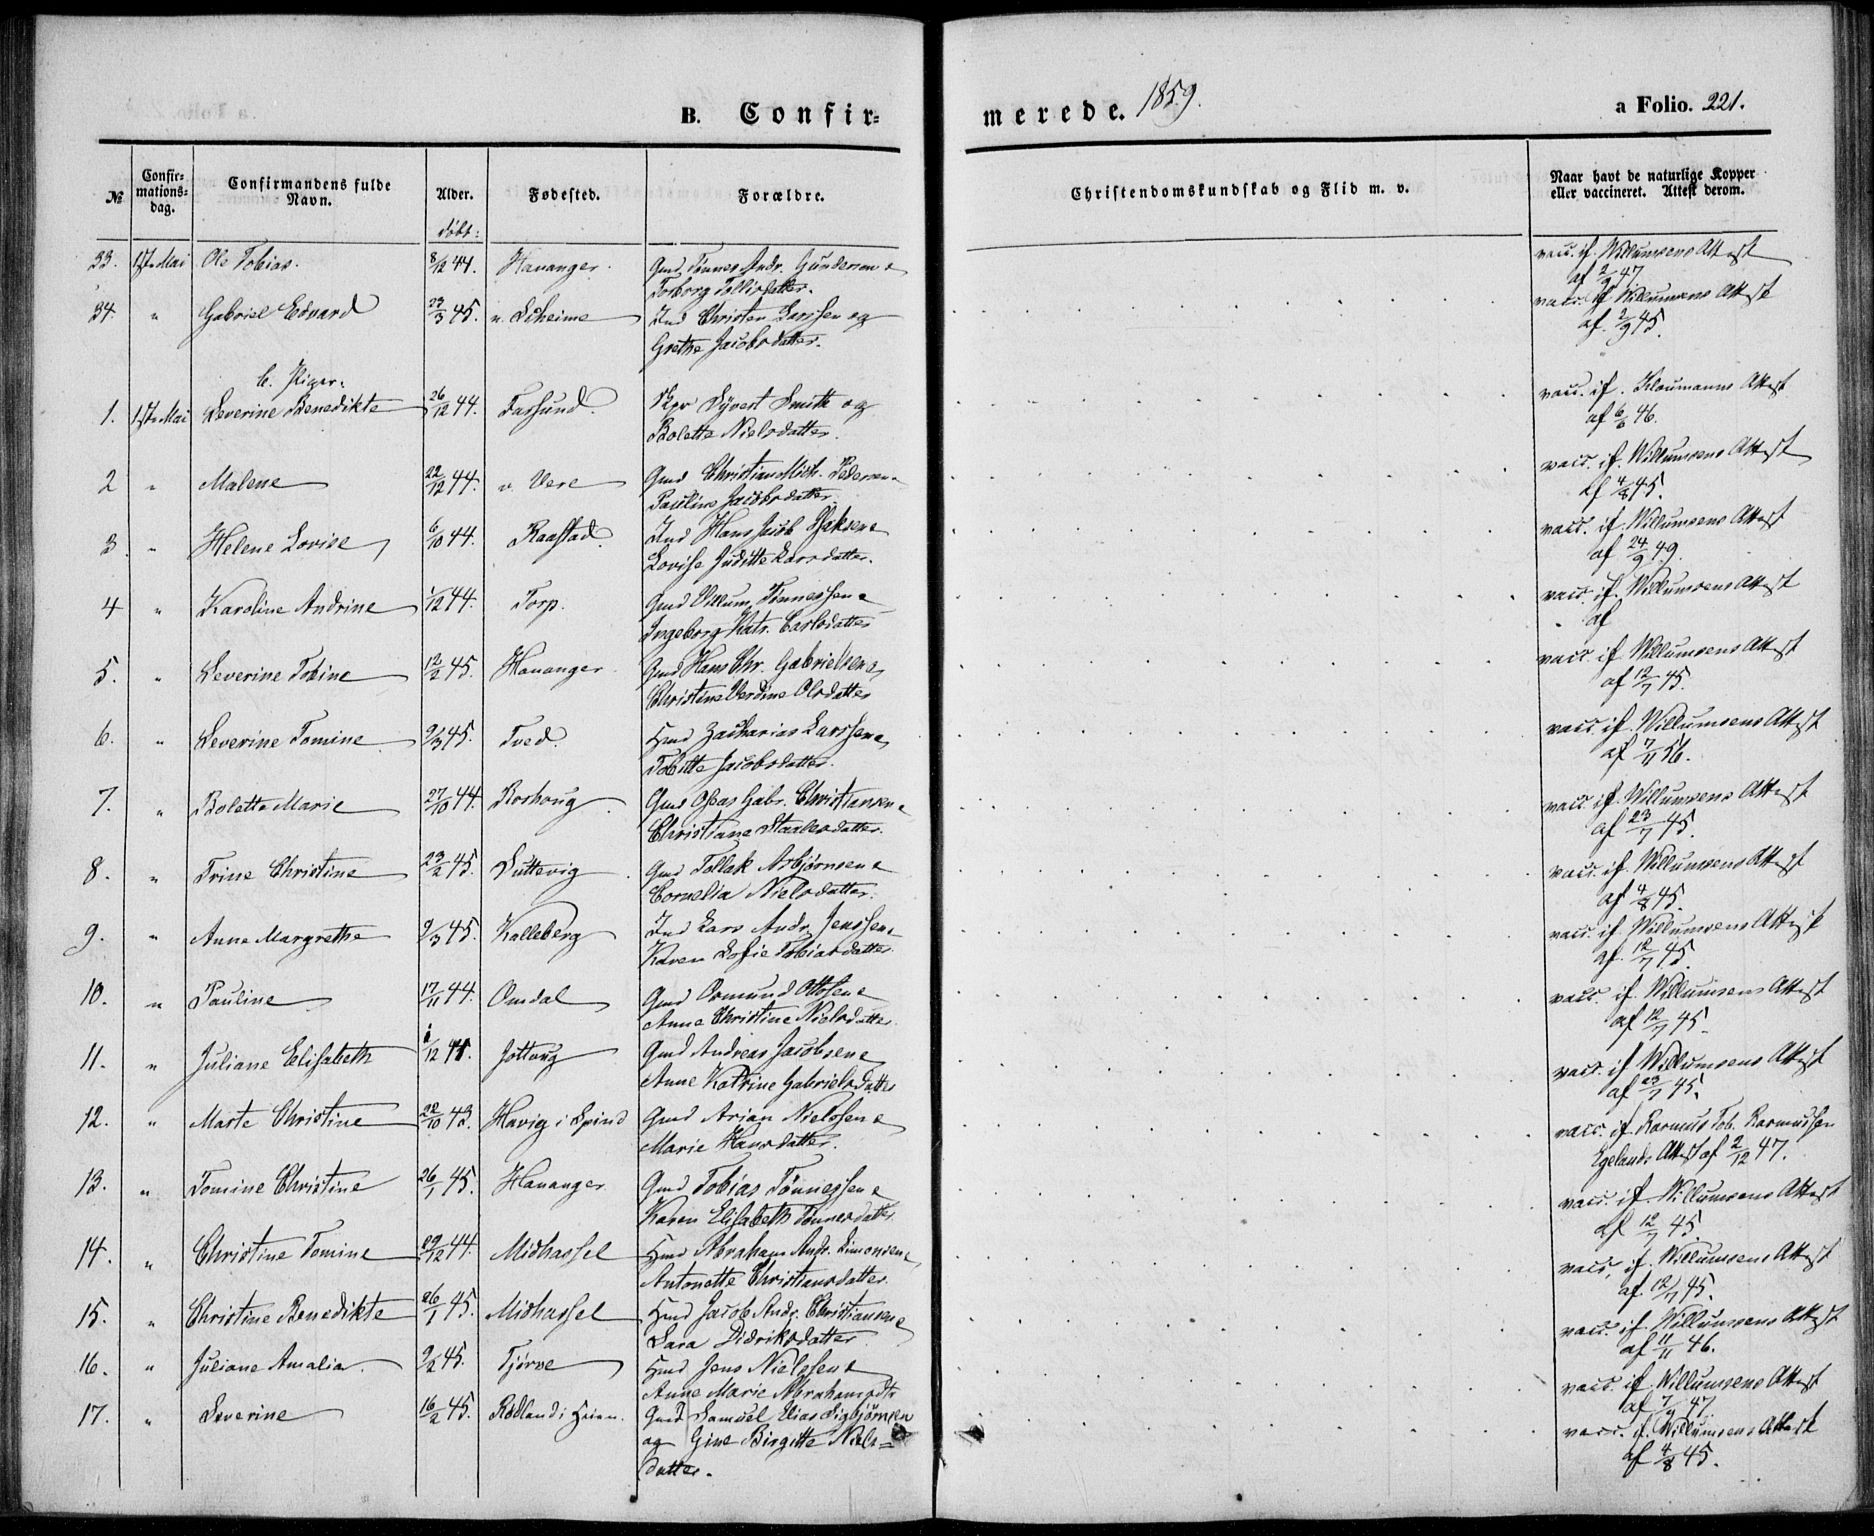 B. Confir-
merede. 1859.
a Folio. 221.
№
Confir-
mations-
dag.
Confirmandens fulde
Navn.
Alder.
Fødested.
Forældre.
Christendomskundskab og Flid m. v.
Naar havt de naturlige Kopper
eller vaccineret. Attest derom.
døbt:
33. 1ste Mai Ole Tobias. 8/12 44. Hananger. Gmd. Tønnes Andr. Gundersen &
Torborg Tollisdatter.
vacc. if. Willumsens Attest
af 2/9 47.
34. " Gabriel Edvard 23/3 45. v. Ind Christen Larssen og
Grethe Jacobsdatter.
vacc. if Willumsens Attest
af. 2/9 45.
b. Piger.
1. 1ste Mai Severine Benedikte 26/12 44. Farsund. Skpr Syvert Smith og
Bolette Nielsdatter.
vacc. if. Klaumanns Attest
af 6/6 46.
2 " Malene 22/12 44. v. Vere Gmd Christian Mich. Pedersen &
Pauline Jacobsdatter
vacc. if. Willumsens Attest
af 4/8 45.
3. " Helene Lovise 6/10 44. Raastad. Ind Hans Jacob &
Lovise Juditte Larsdatter.
vacc. if Willumsens Attest
af 24/9 49.
4 " Karoline Andrine 1/12 44. Torp. Gmd Villum Tønnessen &
Ingeborg Katr. Carlsdatter
vacc. if. Willumsens Attest
af
5. " Severine Tobine 12/2 45. Hananger. Gmd Hans Chr. Gabrielsen &
Christine Verdine Olsdatter
vacc. if Willumsens Attest
af 12/7 45.
6. " Severine Tomine 9/3 45. Tved. Hmd Zacharias Larssen &
Tobitte Jacobsdatter.
vacc. if. Willumsens Attest
af 7/11 56.
7. " Bolette Marie 27/10 44. Roshoug Gmd Oseas Gabr. Christiansen &
Christiane Staalesdatter.
vacc. if Willumsens Attest
af 23/7 45.
8. " Trine Christine 23/2 45. Luttevig. Gmd Tollak Asbjørnsen &
Cornelia Nielsdatter.
vacc. if. Willumsens Attest
af 4/8 45.
9. " Anne Margrethe 9/3 45. Kalleberg Ind Lars Andr. Jenssen &
Karen Sofie Tobiasdatter.
vacc. if. Willumsens Attest
af. 12/7 45.
10. " Pauline 17/11 44. Omdal Gmd Osmund Ottosen &
Anne Christine Nielsdatter.
vacc. if. Willumsens Attest
af 12/7 45.
11. " Juliane Elisabeth 1/12 44. Jøttoug Gmd Andreas Jacobsen &
Anne Katrine Gabrielsdatter
vacc. if Willumsens Attest
af 23/7 45.
12. " Marte Christine 22/10 43. Havig i Spind Gmd Arian Nielssen &
Marie Hansdatter.
vacc. if Rasmus Tob. Rasmussen
Egelands Attest af 2/12 47.
13. " Tomine Christine 26/1 45. Hananger Gmd Tobias Tønnessen &
Karen Elisabeth Tønnesdatter
vacc. if. Willumsens Attest
af 12/7 45.
14. " Christine Tomine 29/12 44. Midhassel Hmd Abraham Andr. Simonsen &
Antonette Christiansdatter.
vacc. if. Willumsens Attest
af. 12/7 45.
15. " Christine Benedikte 26/1 45. Midhassel Hmd Jacob Andr. Christiansen &
Sara Didriksdatter
vacc. if. Willumsens Attest
af 11/11 46.
16. " Juliane Amalia. 9/2 45. Tjørve Hmd Jens Nielssen &
Anne Marie Abrahamsdtr
vacc. if. Willumsens Attest
af 7/9 47.
17. " Severine 16/2 45. Rødland i Heien. Gmd Samuel Elias Sigbjørnsen
og Gine Birgitte Niels-
datter.
vacc. if. Willumsens Attest
af 4/8 45.